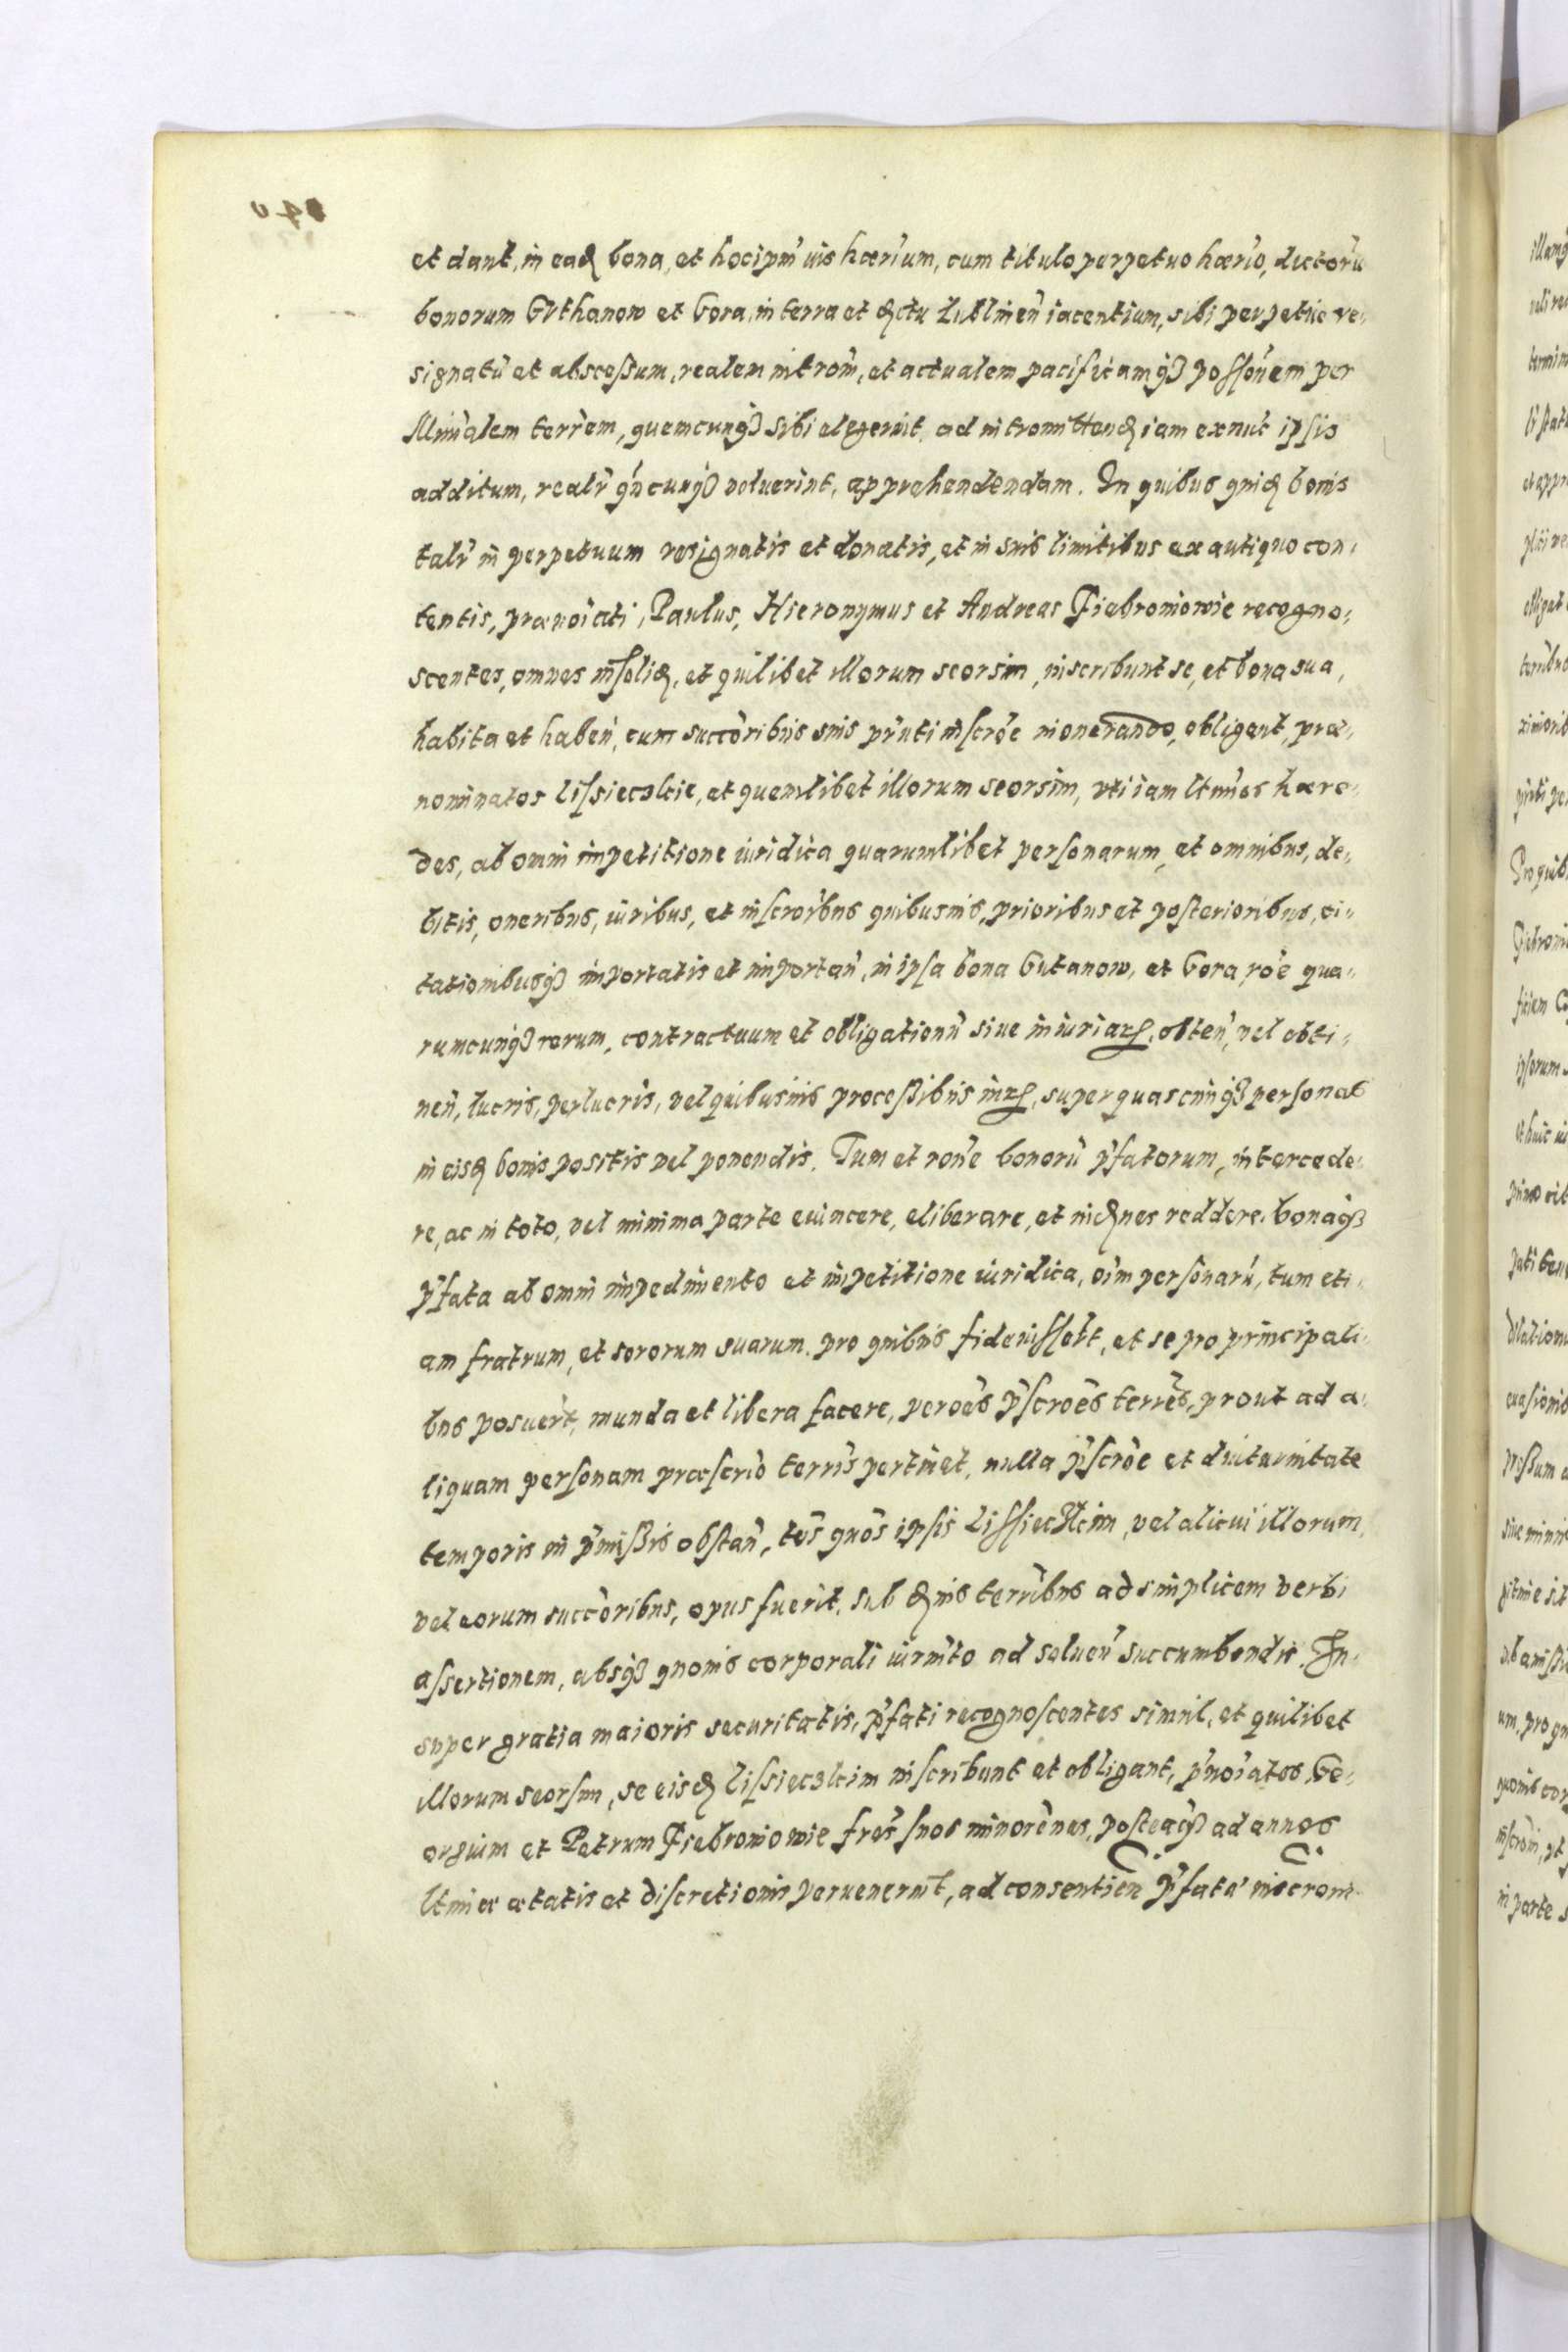 et dant, in eaḍ bona, et hocipm̄ ius hær̄ium, cum titulo perpetuo hær̄io, dictorū
bonorum Guthanow et Gora, in terra et dɨctu Lublineñ iacentium, sibi perpetue re-
signatū et abscessum, realem introm̄, et actualem pacificamq3 possōnem per
Minīalem terr̄em, quemcunq3 sibi elegerint, ad intromittenḍ iam exnūt ipsis
additum, realr̄ qn̄cunq3 voluerint, apprehendendam. In quibus quiḍ bonis
talr̄ in perpetuum resignatis et donatis, et in suis limitibus ex antiquo con-
tentis, prænoīati, Paulus, Hieronymus et Andreas Fiebroniowie recogno-
scentes, omnes insoliḍ, et quilibet illorum seorsim, inscribunt se, et bona sua,
habita et habeñ, cum succōribus suis pn̄ti inscrōe inonerando, obligant, præ-
nominatos Lissieczkie, et quemlibet illorum seorsim, uti iam ltīmos hære-
des, ab omni impetitione iuridica quarumlibet personarum, et omnibus, de-
bitis, oneribus, iuribus, et inscrōibus quibusuis, prioribus et posterioribus, ci-
tationibusq3 importatis et importañ, in ipsa bona Gutanow, et Gora, rōe qua-
rumcunq3 rerum, contractuum et obligationū siue iniuriaꝝ, obteñ, vel obti-
neñ, lucris, perlucris, vel quibusuis processibus iuꝝ, super quascunq3 personas
in eisḍ bonis positis vel ponendis. Tum et rōne bonorū p̄fatorum, intercede-
re, ac in toto, vel minima parte euincere, eliberare, et inḍnes reddere, bonaq3
p̄fata ab omni impedimento et impetitione iuridica, oīm personarū, tum eti-
am fratrum, et sororum suarum, pro quibus fideiussert̄, et se pro principali-
bus posuer̄t, munda et libera facere, per oēs p̄scroēs terrēs, prout ad a-
liquam personam præscrio terr̄is pertinet, nulla p̄scrōe et diuturnitate
temporis in p̄missis obstañ, tōs quōs ipsis Lissieczkim, vel alicui illorum,
vel eorum succōribus, opus fuerit, sub ḍnis terrībus ad simplicem verbi
assertionem, absq3 quouis corporali iurm̄to ad soluēn succumbendis. In-
super gratia maioris securitatis, p̄fati recognoscentes simul, et quilibet
illorum seorsim, se eisḍ Lissieczkim inscribunt et obligant, p̄noīatos, Ge-
orgium et Petrum Fiebroniowie frēs suos minorēnes, posteaq3 ad annos
ltimæ ætatis et discretionis peruenerint, ad consentieñ p̄fatæ inscrōni